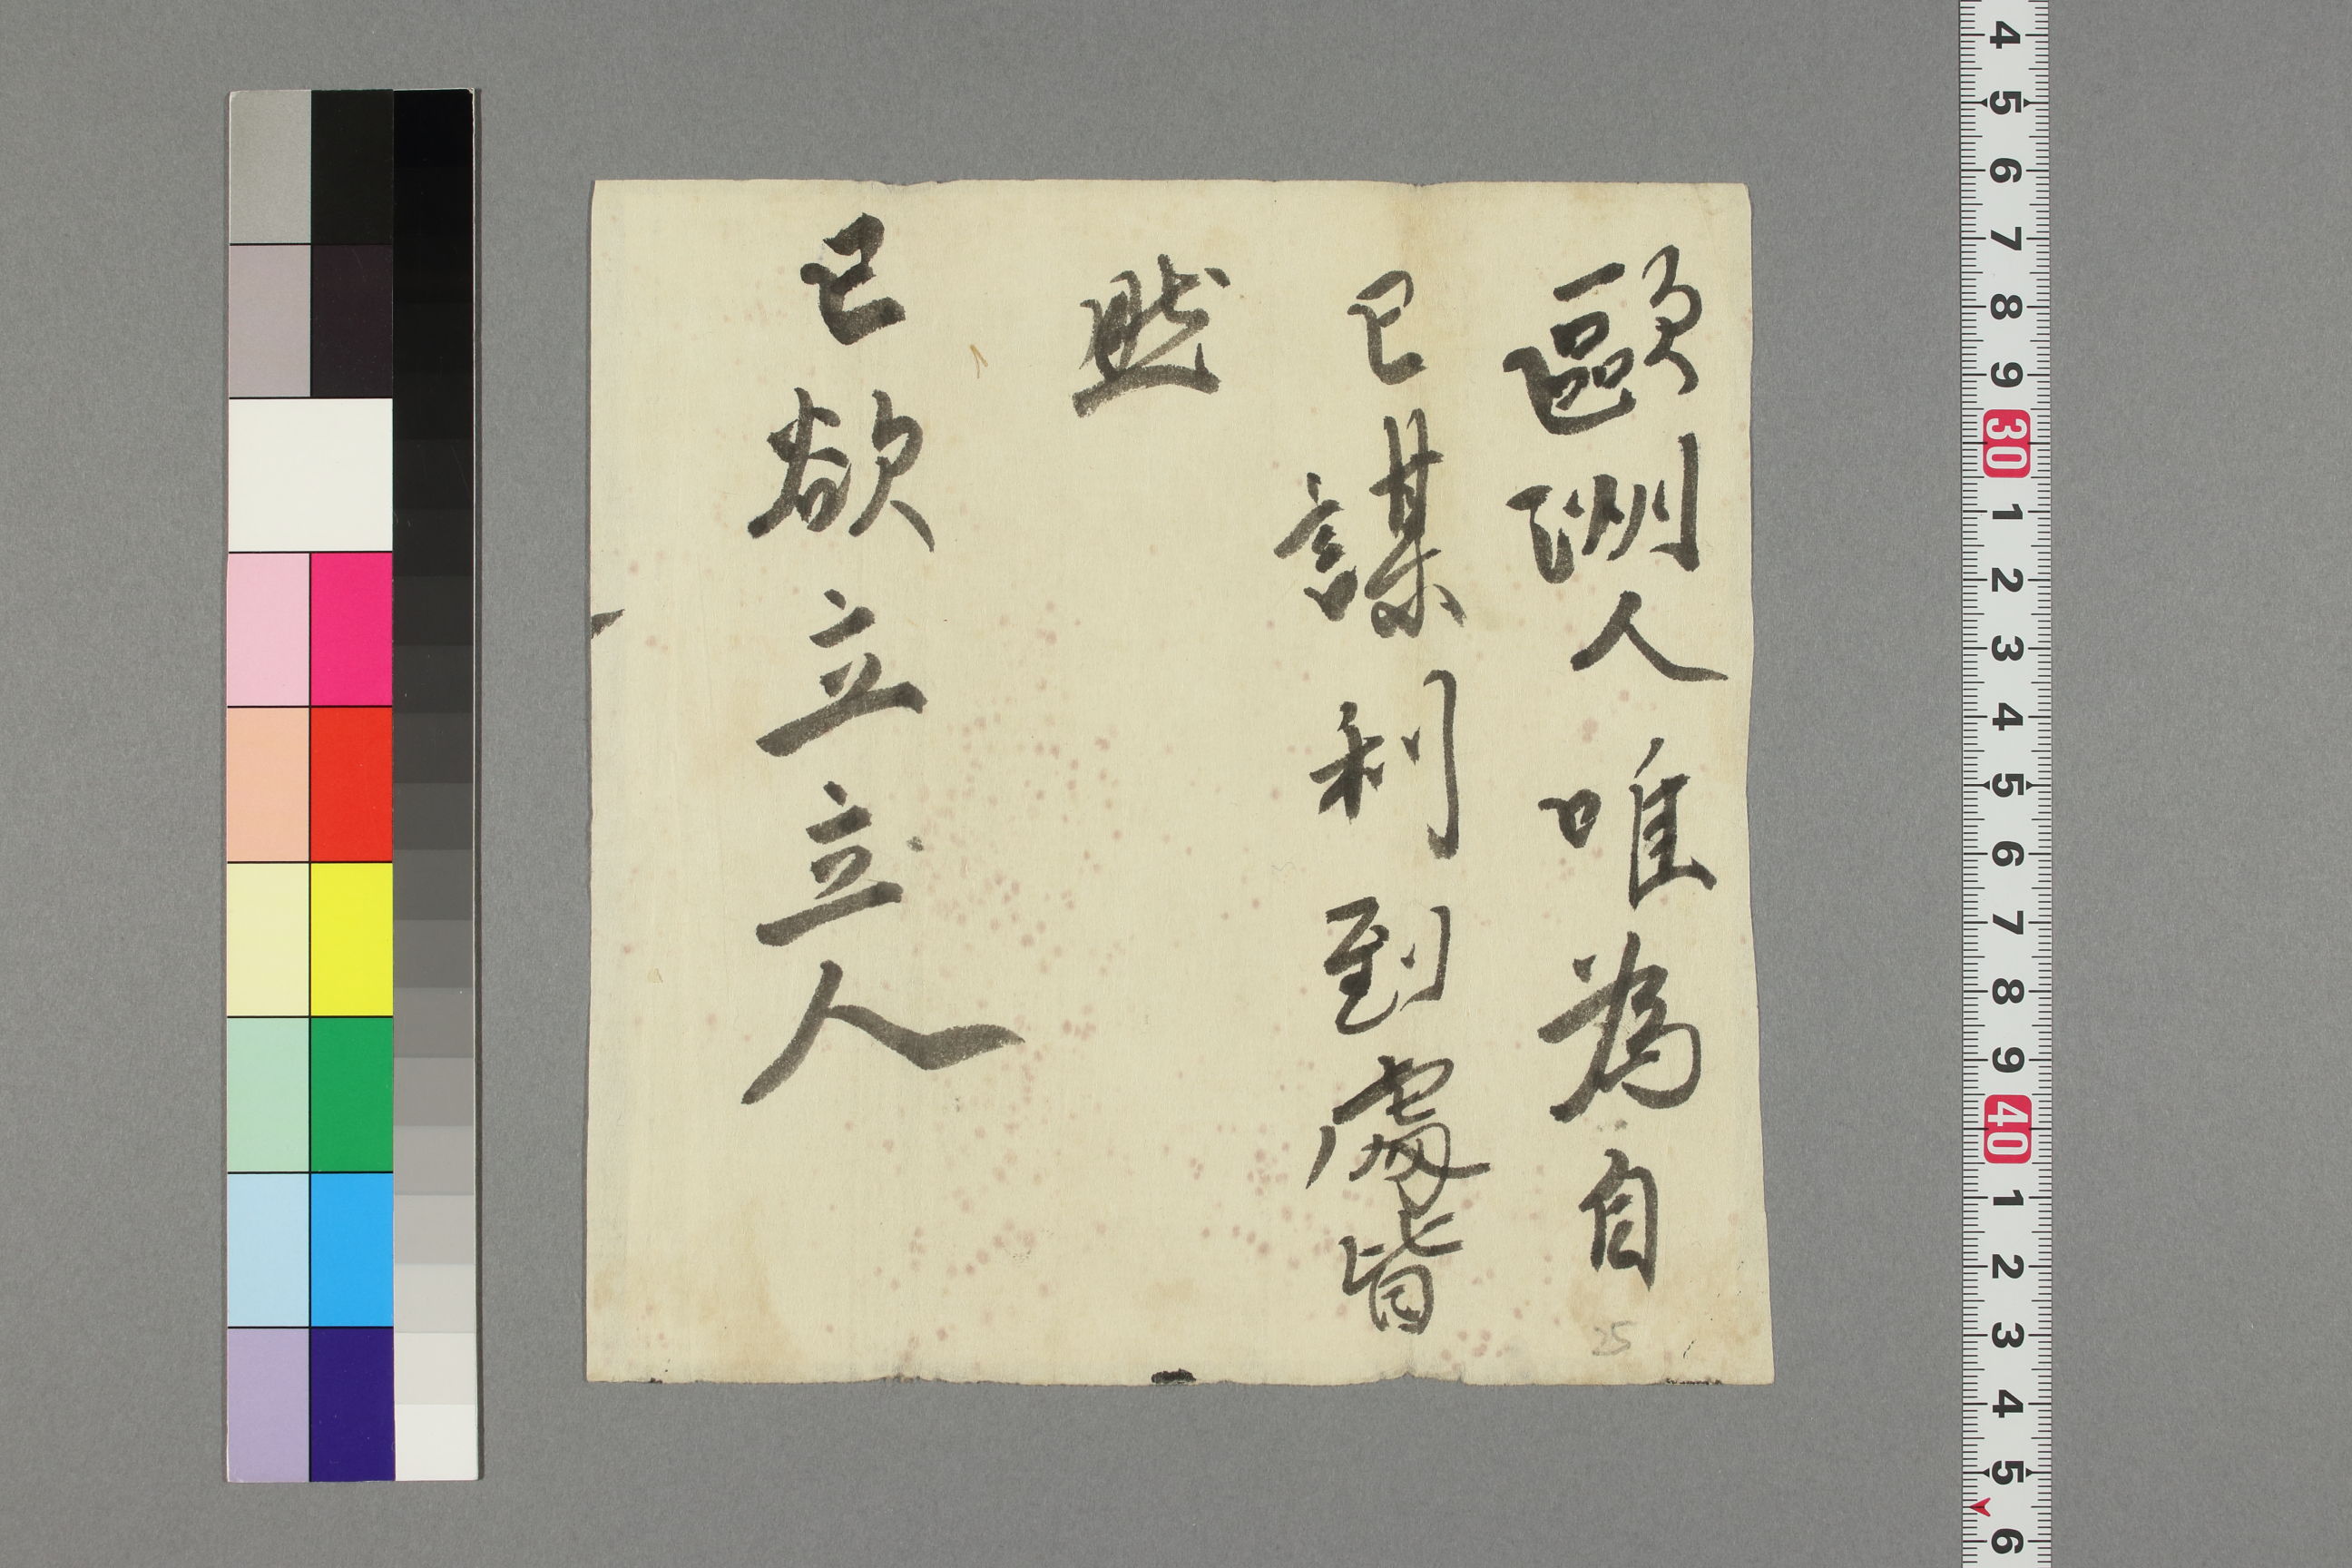 歐洲人唯為自
己謀利到處皆
然
己欲立立人
25
4 5 6 7 8 9 30 1 2 3 4 5 6 7 8 9 40 1 2 3 4 5 6